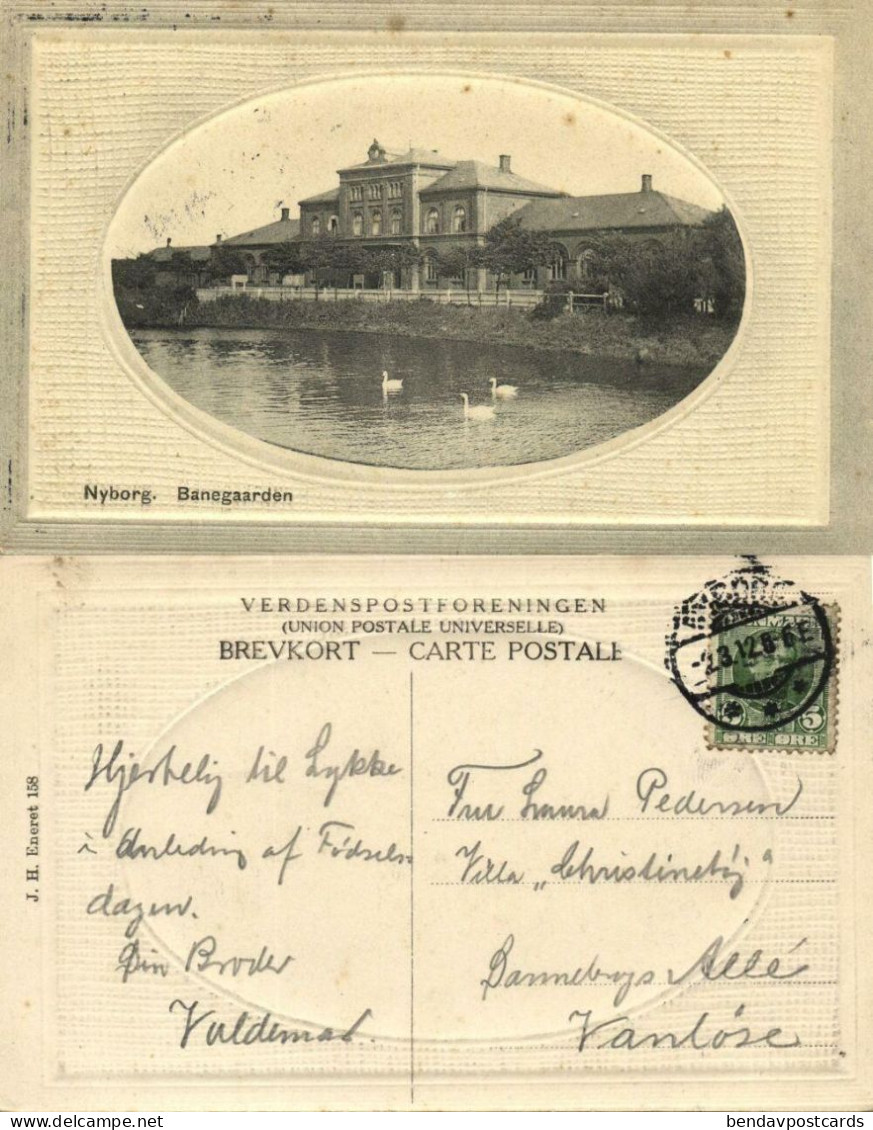 Nyborg. Banegaarden
VERDENSPOSTFORENINGEN
(UNION POSTALE UNIVERSELLE)
BREVKORT — CARTE POSTALE
NYBORG
-2.3.12.8-6E
5 5
ØRE ØRE
J. H. Eneret 158
Hjertelig til Lykke
i Anledning af Fødsels-
dagen.
Din Broder
Valdemar.
Fru Laura Pedersen
Villa „Christinehøj“
Dannebrogs Allé
Vanløse
delcampe.net
bendavpostcards